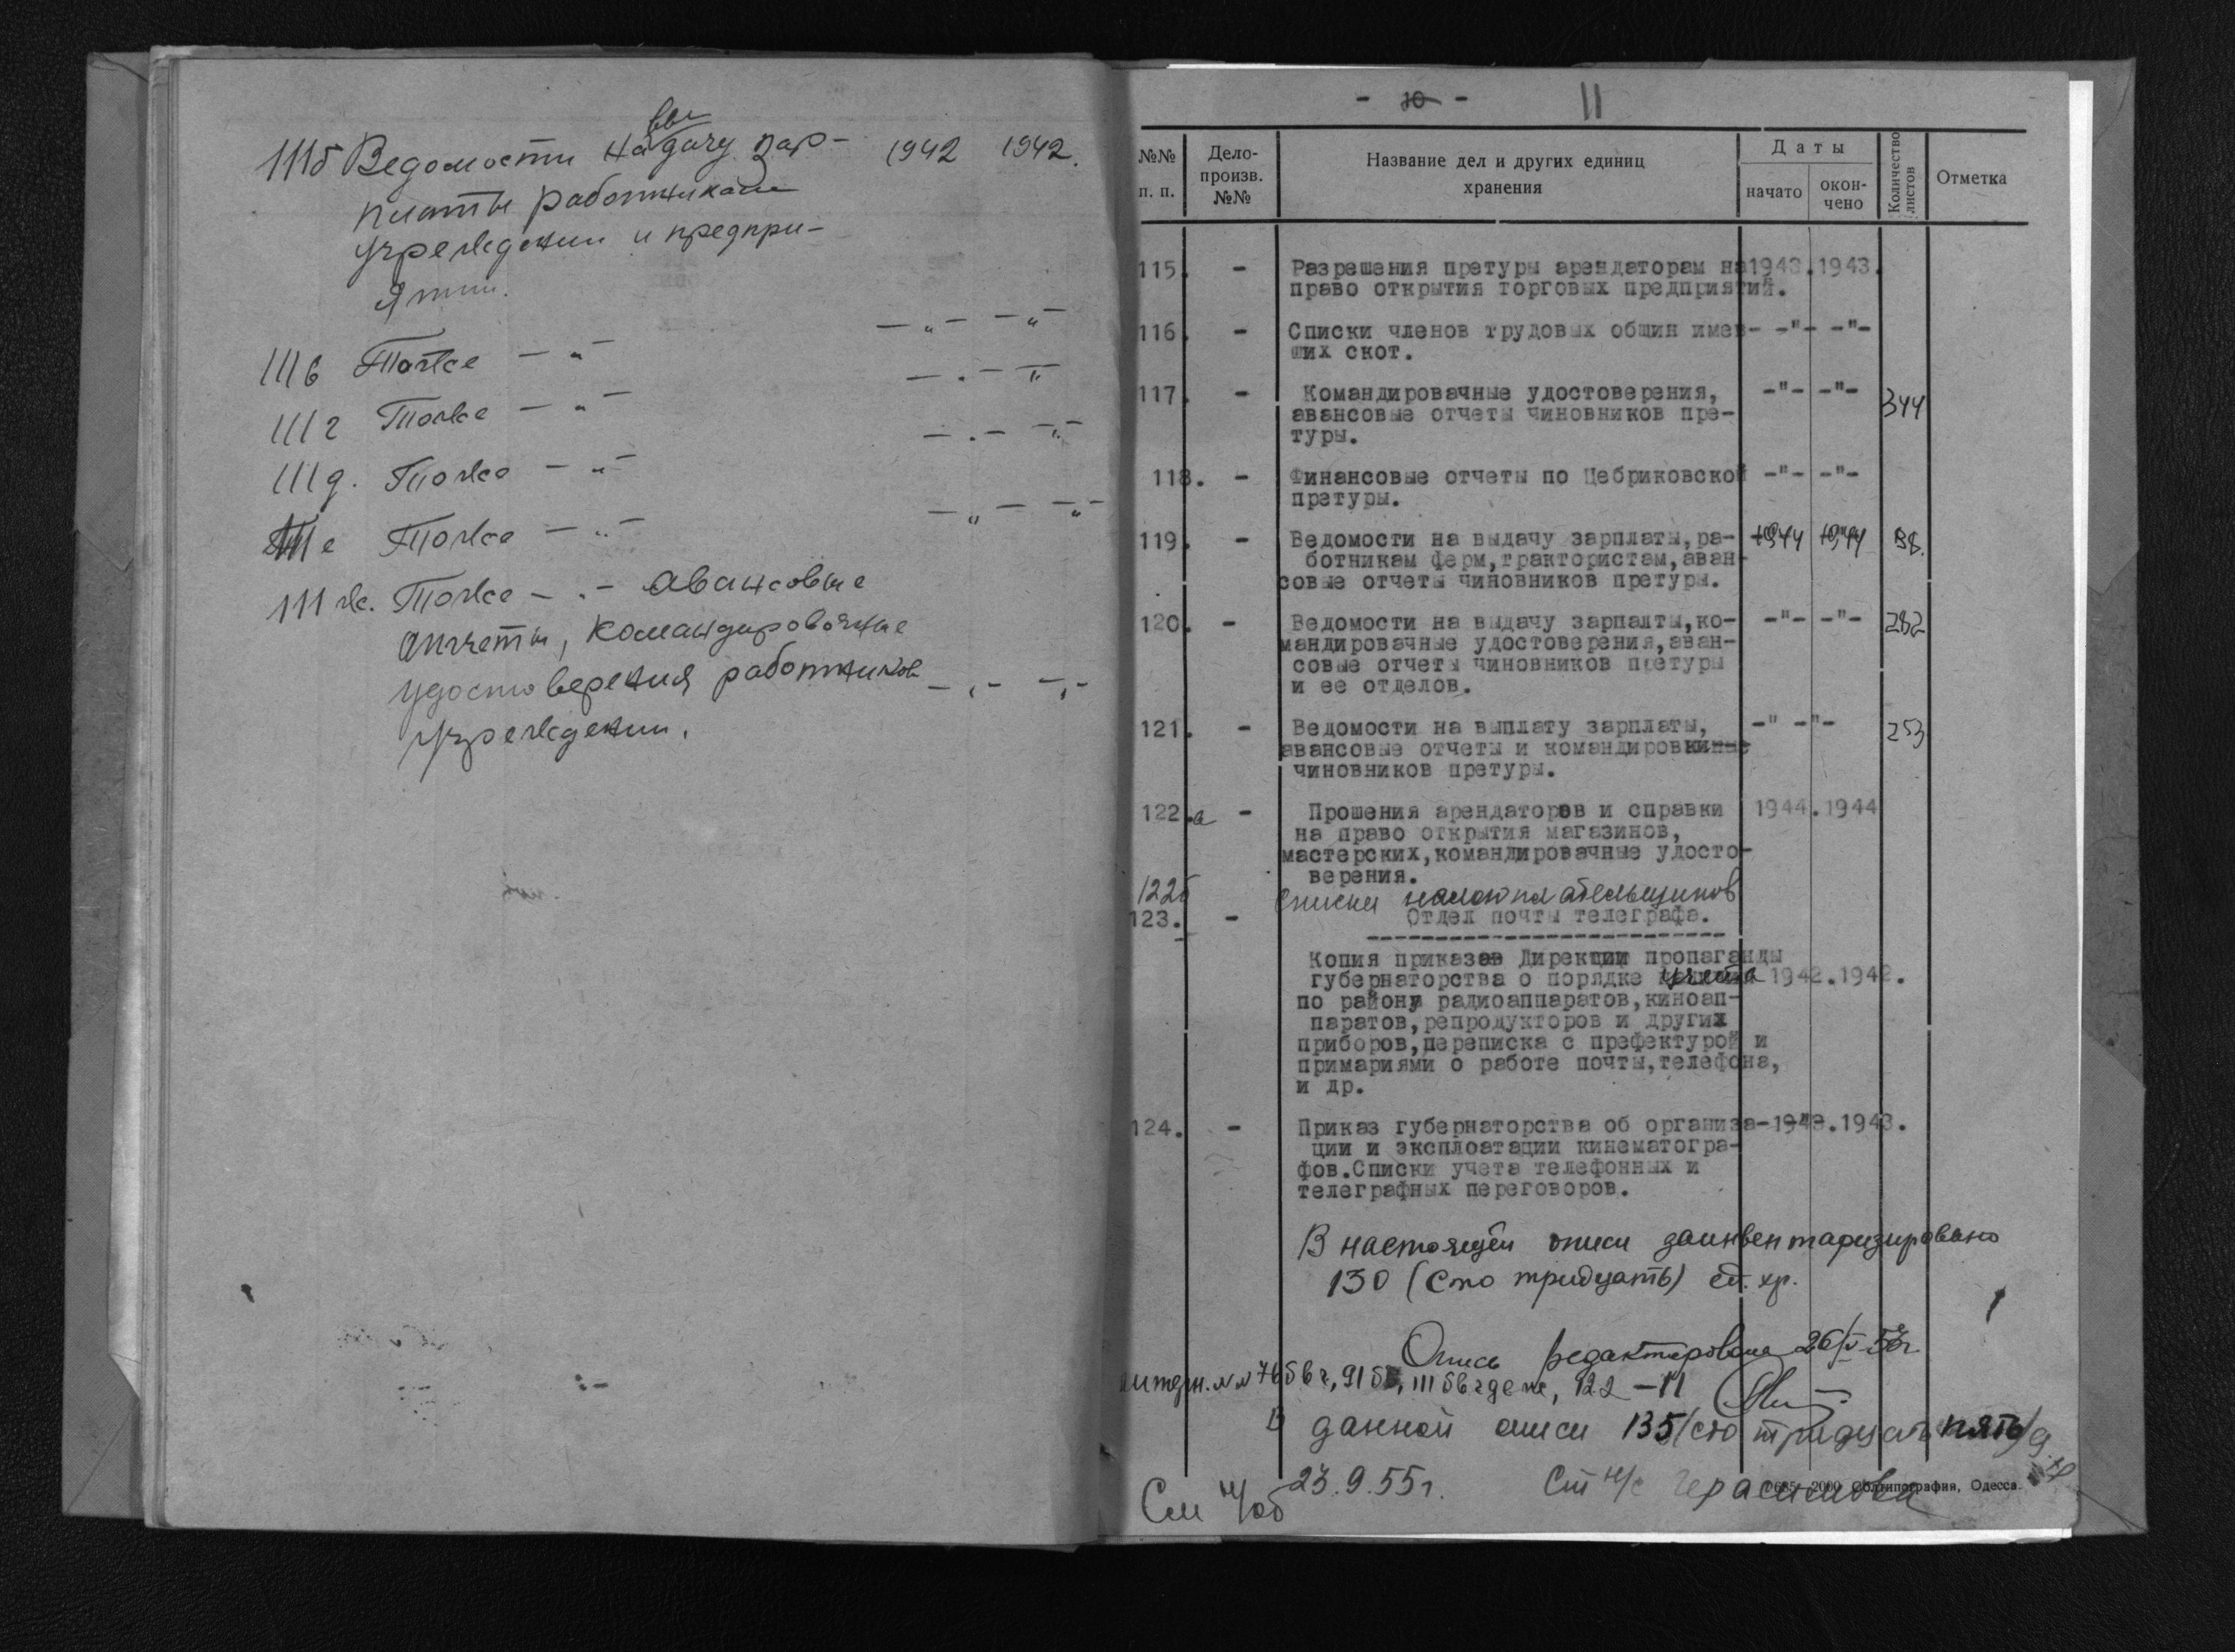 111б Ведомости на выдачу зар- 1942 1942.
платы работникам
учреждений и предпри-
ятий.
111в Тоже — „ — — „ — — „ —
111г Тоже — „ — — „ — — „ —
111д. Тоже — „ — — „ — — „ —
111е Тоже — „ — — „ — — „ —
111ж. Тоже — „ — авансовые
отчеты, командировочные
удостоверения работников — „ — — „ —
учреждений.
- 10 - 11
№№ п. п.
Дело- произв. №№
Название дел и других единиц
хранения
Даты
начато
окон- чено
Количество листов
Отметка
115. - Разрешения претуры арендаторам на 1943. 1943.
право открытия торговых предприятий.
116. - Списки членов трудовых общин имев- -"- -"-
ших скот.
117. - Командировачные удостоверения, -"- -"- 344
авансовые отчеты чиновников пре-
туры.
118. - Финансовые отчеты по Цебриковской -"- -"-
претуры.
119. - Ведомости на выдачу зарплаты,ра- 1944 1944 98.
ботникам ферм,трактористам,аван-
совые отчеты чиновников претуры.
120. - Ведомости на выдачу зарпалты,ко- -"- -"- 282
мандировачные удостоверения,аван-
совые отчеты чиновников претуры
и ее отделов.
121. - Ведомости на выплату зарплаты, -" -"- 253
авансовые отчеты и командировки
чиновников претуры.
122.а - Прошения арендаторов и справки 1944.1944
на право открытия магазинов,
мастерских,командировачные удосто-
верения.
122б Списки налогоплательщиков
123. - Отдел почты телеграфа.
Копия приказов Дирекции пропаганды
губернаторства о порядке учета 1942.1942.
по району радиоаппаратов,киноап-
паратов,репродукторов и других
приборов,переписка с префектурой и
примариями о работе почты,телефона,
и др.
124. - Приказ губернаторства об организа-1943.1943.
ции и эксплоатации кинематогра-
фов.Списки учета телефонных и
телеграфных переговоров.
В настоящей описи заинвентаризировано
130 (сто тридцать) ед. хр.
Опись редактирована 26/V-53г.
литерн. №№ 76бвг, 91б, 111бвгдеж, 122 - 11
В данной описи 135/сто тридцать пять/
23.9.55г. Ст н/с Герасимова
См н/об
2000 Облтипография, Одесса.